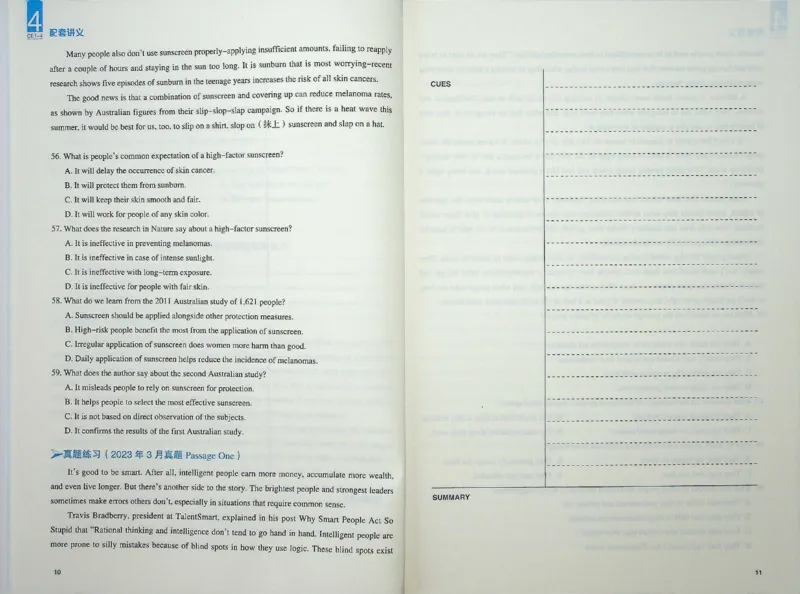 4
CET-4
配套讲义
Many people also don't use sunscreen properly-applying insufficient amounts, failing to reapply
after a couple of hours and staying in the sun too long. It is sunburn that is most worrying-recent
research shows five episodes of sunburn in the teenage years increases the risk of all skin cancers.
The good news is that a combination of sunscreen and covering up can reduce melanoma rates,
as shown by Australian figures from their slip-slop-slap campaign. So if there is a heat wave this
summer, it would be best for us, too, to slip on a shirt, slop on (抹上) sunscreen and slap on a hat.
56. What is people's common expectation of a high-factor sunscreen?
A. It will delay the occurrence of skin cancer.
B. It will protect them from sunburn.
C. It will keep their skin smooth and fair.
D. It will work for people of any skin color.
57. What does the research in Nature say about a high-factor sunscreen?
A. It is ineffective in preventing melanomas.
B. It is ineffective in case of intense sunlight.
C. It is ineffective with long-term exposure.
D. It is ineffective for people with fair skin.
58. What do we learn from the 2011 Australian study of 1,621 people?
A. Sunscreen should be applied alongside other protection measures.
B. High-risk people benefit the most from the application of sunscreen.
C. Irregular application of sunscreen does women more harm than good.
D. Daily application of sunscreen helps reduce the incidence of melanomas.
59. What does the author say about the second Australian study?
A. It misleads people to rely on sunscreen for protection.
B. It helps people to select the most effective sunscreen.
C. It is not based on direct observation of the subjects.
D. It confirms the results of the first Australian study.
真题练习 (2023 年 3 月真题 Passage One)
It's good to be smart. After all, intelligent people earn more money, accumulate more wealth,
and even live longer. But there's another side to the story. The brightest people and strongest leaders
sometimes make errors others don't, especially in situations that require common sense.
Travis Bradberry, president at TalentSmart, explained in his post Why Smart People Act So
Stupid that "Rational thinking and intelligence don't tend to go hand in hand. Intelligent people are
more prone to silly mistakes because of blind spots in how they use logic. These blind spots exist
10
CUES
SUMMARY
11